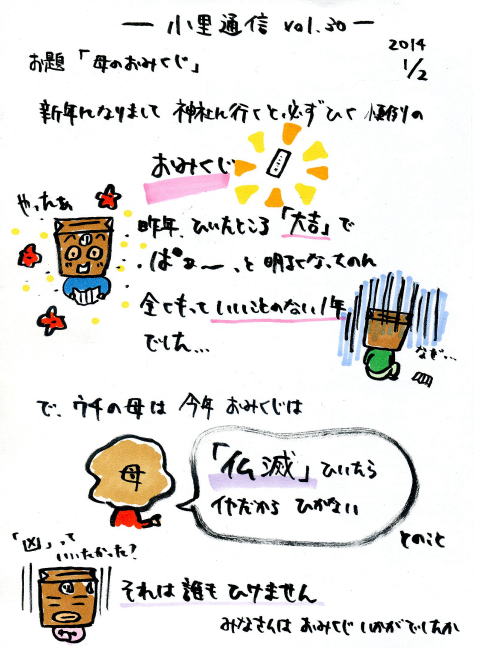 ー 小里通信 vol.30 ー
2014
1/2
お題「母のおみくじ」
新年になりまして 神社に行くと必ずひく 恒例の
おみくじ
やったぁ
昨年、ひいたところ「大吉」で
ぱぁ〜、と明るくなったのに
全くもっていいことのない1年
でした…
なぜ…
で、ウチの母は 今年 おみくじは
母
「仏滅」ひいたら
イヤだから ひかない
とのこと
「凶」って
いいたかった?
それは誰もひけません
みなさんは おみくじ いかがでしたか